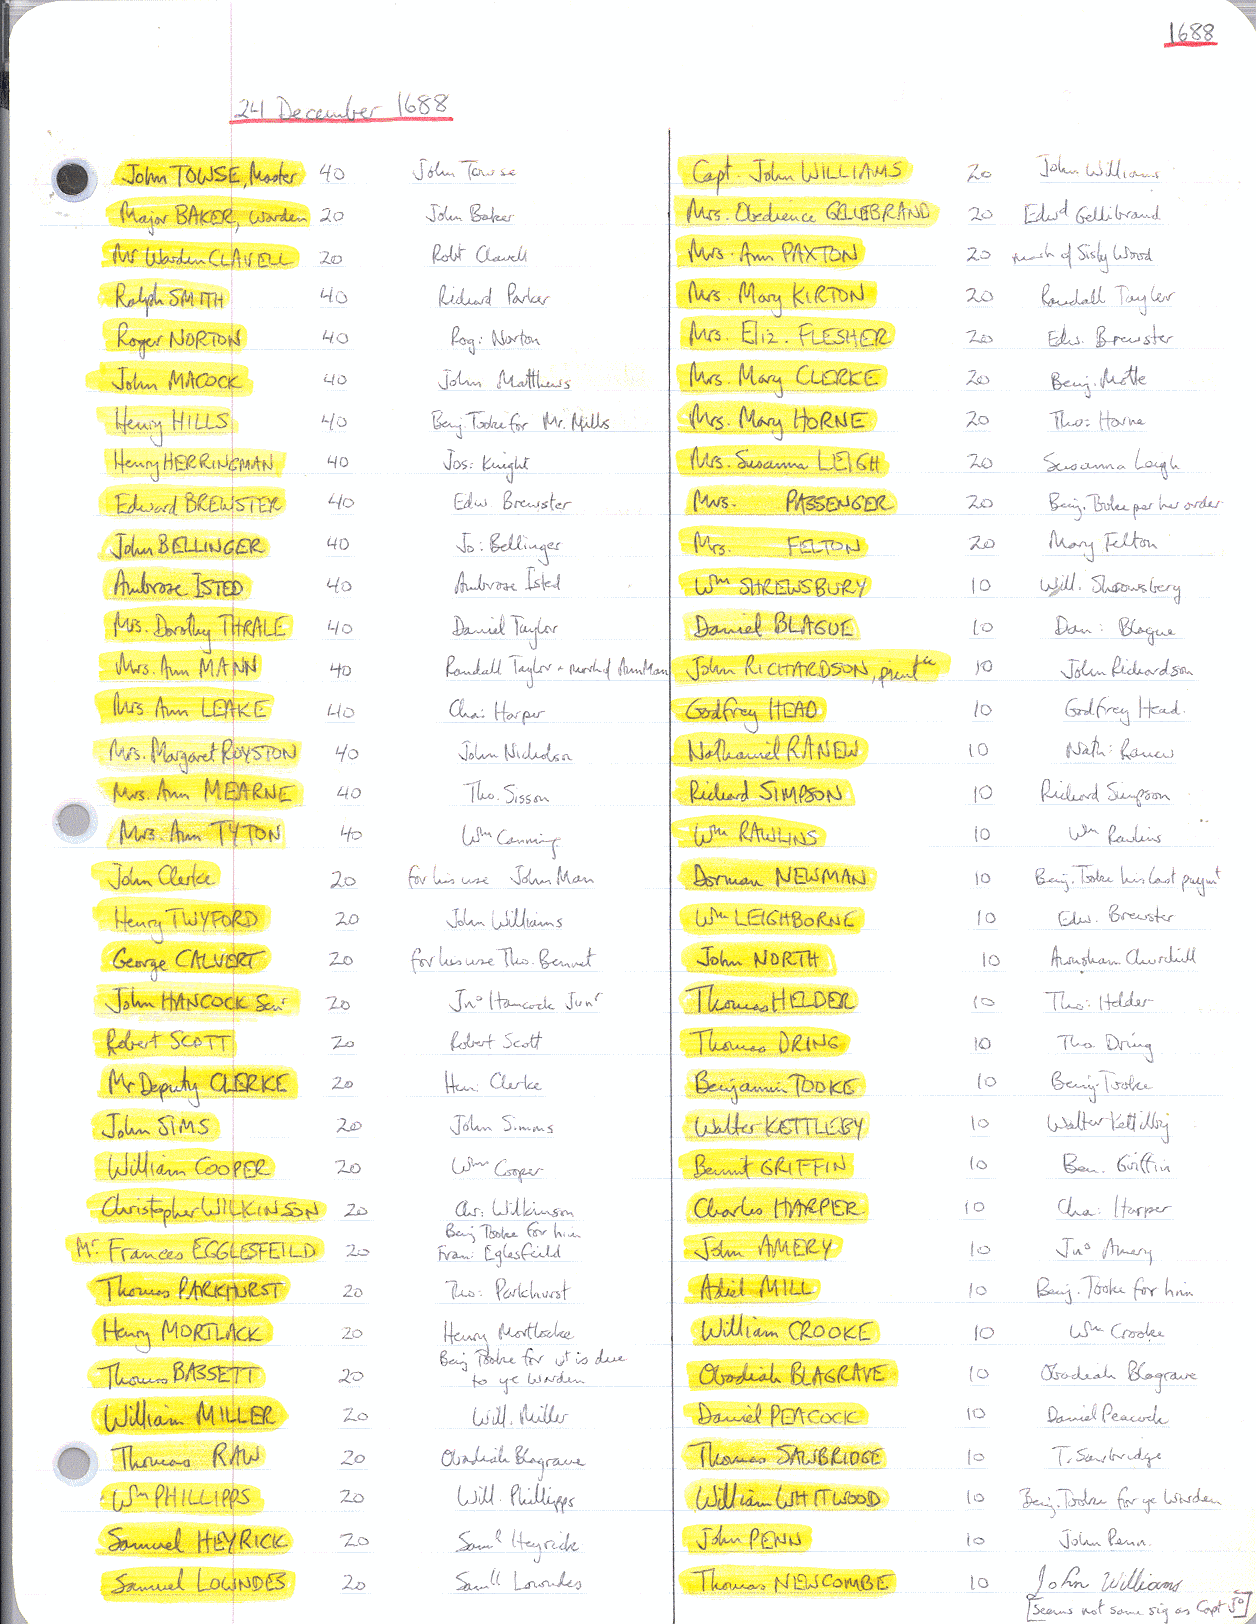 1688
24 December 1688
John TOWSE, Master 40 John Towse
Major BAKER, Warden 20 John Baker
Mr Warden CLAVELL 20 Robt Clavell
Ralph SMITH 40 Richard Parker
Roger NORTON 40 Rog: Norton
John MACOCK 40 John Matthews
Henry HILLS 40 Benj. Tooke for Mr. Mills
Henry HERRINGMAN 40 Jos: Knight
Edward BREWSTER 40 Edw. Brewster
John BELLINGER 40 Jo: Bellinger
Ambrose ISTED 40 Ambrose Isted
Mrs. Dorothy THRALE 40 Daniel Taylor
Mrs. Ann MANN 40 Randall Taylor + mark of Ann Man
Mrs Ann LEAKE 40 Cha: Harper
Mrs. Margaret ROYSTON 40 John Nicholson
Mrs. Ann MEARNE 40 Tho. Sisson
Mrs. Ann TYTON 40 Wm Canning
John Clerke 20 for his use John Man
Henry TWYFORD 20 John Williams
George CALVERT 20 for his use Tho. Bennet
John HANCOCK Senr 20 Jno Hancock Junr
Robert SCOTT 20 Robert Scott
Mr Deputy CLERKE 20 Hen: Clerke
John SIMS 20 John Simms
William COOPER 20 Wm Cooper
Christopher WILKINSON 20 Chr: Wilkinson
Mr. Frances EGGLESFEILD 20 Benj Tooke for him
Fran: Eglesfeild
Thomas PARKHURST 20 Tho: Parkhurst
Henry MORTLACK 20 Henry Mortlocke
Thomas BASSETT 20 Benj Tooke for wt is due
to ye Warden
William MILLER 20 Will. Miller
Thomas RAW 20 Obadiah Blagrave
Wm PHILLIPPS 20 Will. Phillipps
Samuel HEYRICK 20 Saml Heyrick
Samuel LOWNDES 20 Samll Lowndes
Capt. John WILLIAMS 20 John Williams
Mrs. Obedience GELLEBRAND 20 Edwd Gellibrand
Mrs. Ann PAXTON 20 mark of Sisly Wood
Mrs. Mary KIRTON 20 Randall Taylor
Mrs. Eliz. FLESHER 20 Edw. Brewster
Mrs. Mary CLERKE 20 Benj. Motte
Mrs. Mary HORNE 20 Tho: Horne
Mrs. Susanna LEIGH 20 Susanna Leigh
Mrs. PASSENGER 20 Benj. Tooke per her order
Mrs. FELTON 20 Mary Felton
Wm SHREWSBURY 10 Will. Shrowsbery
Daniel BLAGUE 10 Dan: Blague
John RICHARDSON, printer 10 John Richardson
Godfrey HEAD 10 Godfrey Head.
Nathaniel RANEW 10 Nath: Ranew
Richard SIMPSON 10 Richard Simpson
Wm RAWLINS 10 Wm Rawlins
Dorman NEWMAN 10 Benj. Tooke his last paymt
Wm LEIGHBORNE 10 Edw. Brewster
John NORTH 10 Awnsham Churchill
Thomas HELDER 10 Tho: Helder
Thomas DRING 10 Tho. Dring
Benjamin TOOKE 10 Benj. Tooke
Walter KETTLEBY 10 Walter Kettilby
Bennit GRIFFIN 10 Ben. Griffin
Charles HARPER 10 Cha: Harper
John AMERY 10 Jno Amery
Adiel MILL 10 Benj. Tooke for him
William CROOKE 10 Wm Crooke
Obadiah BLAGRAVE 10 Obadiah Blagrave
Daniel PEACOCK 10 Daniel Peacock
Thomas SAWBRIDGE 10 T. Sawbridge
William WHITWOOD 10 Benj. Tooke for ye Warden
John PENN 10 John Penn.
Thomas NEWCOMBE 10 John Williams
[Seems not same sig as Capt Jo]